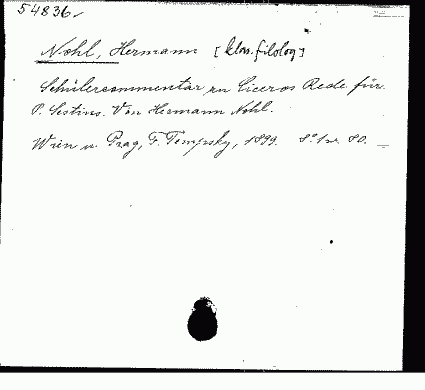 54836
Nohl, Hermann [klas. filolog]
Schülercommentar zu Ciceros Rede für
P. Sestius. Von Hermann Nohl.
Wien u. Prag, F. Tempsky, 1899. 8°. 80.